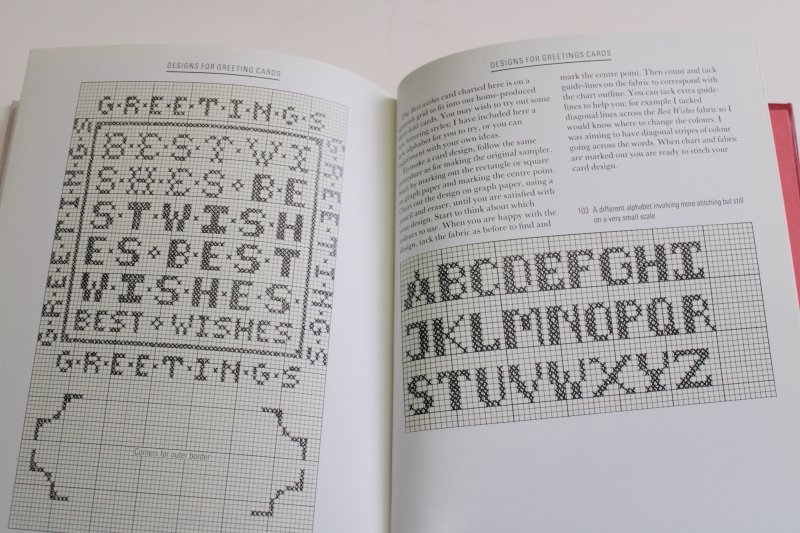 DESIGNS FOR GREETING CARDS
G·R·E·E·T·I·N·G·S
GREETINGS
GREETINGS
BEST WI
SHES BE
S·TWISH
ES·BEST
WISHES
BEST WISHES
G·R·E·E·T·I·N·G·S
Corners for outer border
DESIGNS FOR GREETINGS CARDS
The Best wishes card charted here is on a
grid to fit into our home-produced
-fold cards. You may wish to try out some
styles. I have included here a
alphabet for you to try, or you can
experiment with your own ideas.
To make a card design, follow the same
procedure as for making the original sampler.
Start by marking out the rectangle or square
on graph paper and marking the centre point.
Chart out the design on graph paper, using a
pencil and eraser, until you are satisfied with
design. Start to think about which
colours to use. When you are happy with the
design, tack the fabric as before to find and
mark the centre point. Then count and tack
guide-lines on the fabric to correspond with
the chart outline. You can tack extra guide-
lines to help you; for example I tacked
diagonal lines across the Best Wishes fabric so I
would know where to change the colours. I
was aiming to have diagonal stripes of colour
going across the words. When chart and fabric
are marked out you are ready to stitch your
card design.
103 A different alphabet involving more stitching but still
on a very small scale
ABCDEFGHI
JKLMNOPQR
STUVWXYZ